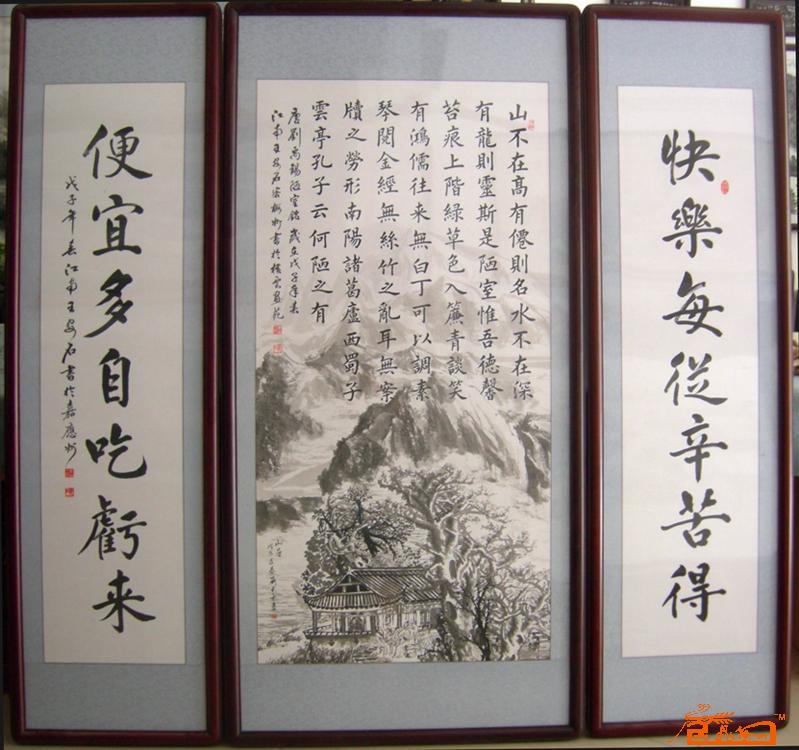 快樂每從辛苦得
山不在高有僊則名水不在深
有龍則靈斯是陋室惟吾德馨
苔痕上階緑草色入簾青談笑
有鴻儒往来無白丁可以調素
琴閱金經無絲竹之亂耳無案
牘之勞形南陽諸葛廬西蜀子
雲亭孔子云何陋之有
唐劉禹錫陋室銘 歲在戊子年春
江南王安石
便宜多自吃虧来
戊子年春江南王安石書於嘉應州